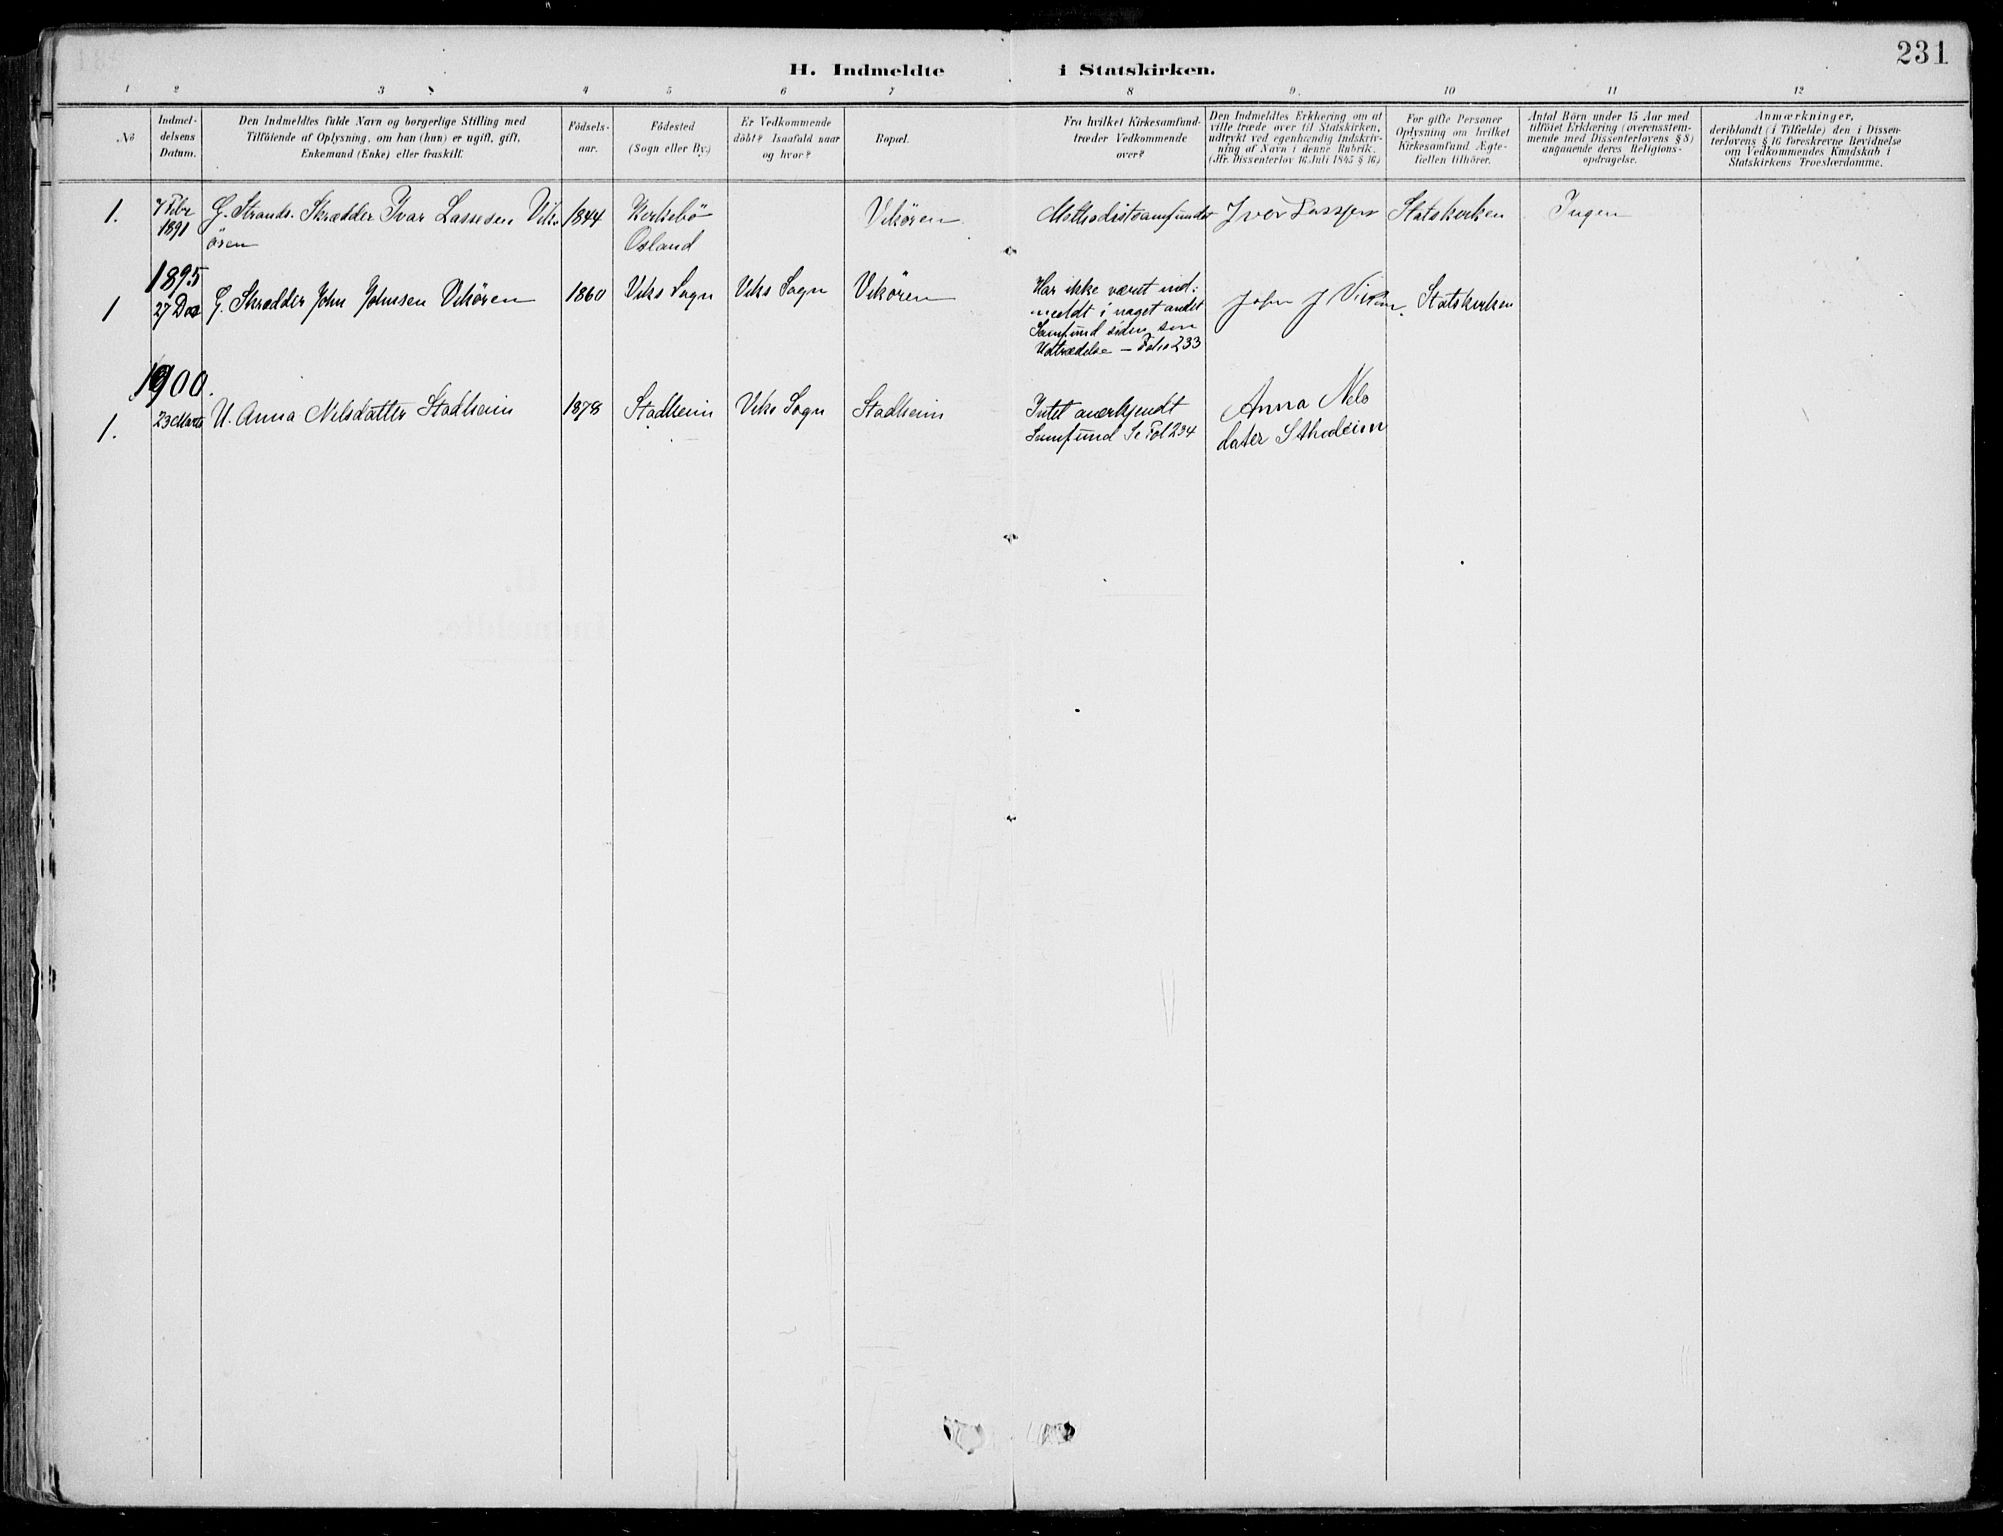 231
H. Indmeldte i Statskirken.
1 2 3 4 5 6 7 8 9 10 11 12
No
Indmel-
delsens
Datum.
Den Indmeldtes fulde Navn og borgerlige Stilling med
Tilföiende af Oplysning, om han (hun) er ugift, gift,
Enkemand (Enke) eller fraskilt.
Födsels-
aar.
Födested
(Sogn eller By.)
Er Vedkommende
döbt? Isaafald naar
og hvor?
Bopæl.
Fra hvilket Kirkesamfund
træder Vedkommende
over?
Den Indmeldtes Erklæring om at
ville træde over til Statskirken,
udtrykt ved egenhændig Indskriv-
ning af Navn i denne Rubrik.
(Jfr. Dissenterlov 16 Juli 1845 § 16)
For gifte Personer
Oplysning om hvilket
Kirkesamfund Ægte-
fællen tilhörer.
Antal Börn under 15 Aar med
tilföiet Erklæring (overensstem-
mende med Dissenterlovens § 8)
angaaende deres Religions-
opdragelse.
Anmærkninger,
deriblandt (i Tilfælde) den i Dissen-
terlovens § 16 foreskrevne Bevidnelse
om Vedkommendes Kundskab i
Statskirkens Troeslærdomme.
1. 7 Febr G. Strands. Skrædder Ivar Lassesen Vik 1844 Kirkebö Vikören Methodistsamfundet Iver Lassesen Statskirken Ingen
1891 ören Osland
1895
1 27 Dec G. Skrædder John Johnsen Vikören 1860 Viks Sogn Viks Sogn Vikören Har ikke været ind- John J Vikören Statskirken
meldt i noget andet
Samfund siden sin
Udtrædelse – Folio 233
1900.
1. 23 Marts U. Anna Nilsdatter Stadheim 1878 Stadheim Viks Sogn Stadheim Intet anerkjendt Anna Nels
Samfund Se Fol 234 dater Sthadeim